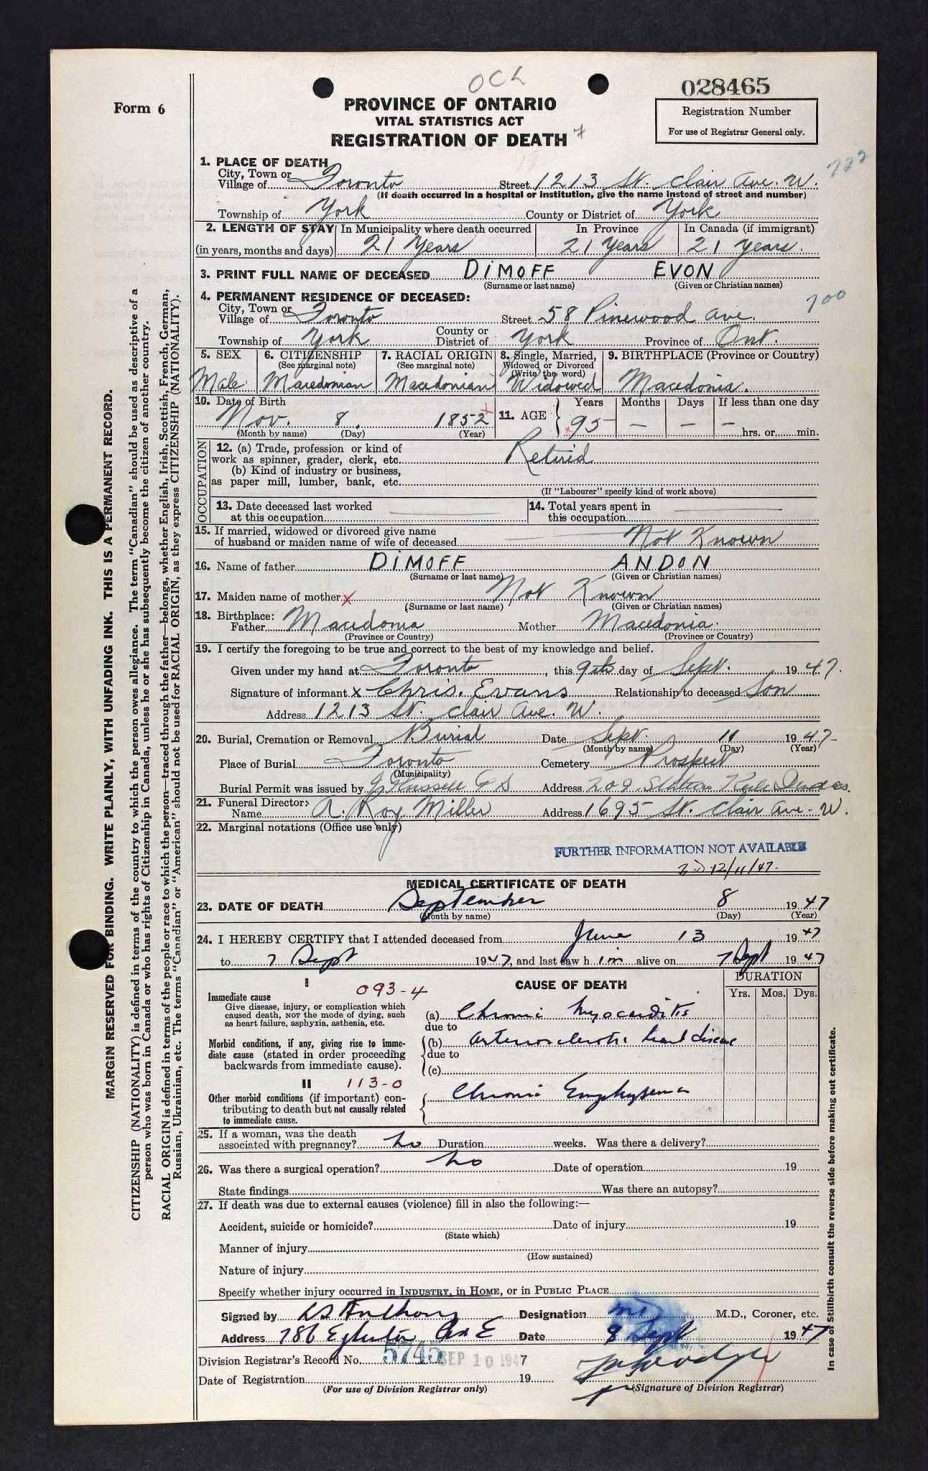 OCL
028465
Form 6
PROVINCE OF ONTARIO
VITAL STATISTICS ACT
REGISTRATION OF DEATH
Registration Number
For use of Registrar General only.
1. PLACE OF DEATH
City, Town or Village of Toronto Street 1213 St. Clair Ave. W.
(If death occurred in a hospital or institution, give the name instead of street and number)
Township of York County or District of York
2. LENGTH OF STAY In Municipality where death occurred In Province In Canada (if immigrant)
(in years, months and days) 21 Years 21 Years 21 Years.
3. PRINT FULL NAME OF DECEASED DIMOFF EVON
(Surname or last name) (Given or Christian names)
4. PERMANENT RESIDENCE OF DECEASED: 700
City, Town or Village of Toronto Street 58 Pinewood Ave.
Township of York County or District of York Province of Ont.
5. SEX 6. CITIZENSHIP 7. RACIAL ORIGIN 8. Single, Married, Widowed or Divorced 9. BIRTHPLACE (Province or Country)
(See marginal note) (See marginal note) (Write the word)
Male Macedonian Macedonian Widowed Macedonia.
10. Date of Birth 11. AGE Years Months Days If less than one day
Nov. 8, 1852 95 — — — hrs. or min.
(Month by name) (Day) (Year)
OCCUPATION
12. (a) Trade, profession or kind of
work as spinner, grader, clerk, etc. Retired
(b) Kind of industry or business,
as paper mill, lumber, bank, etc.
(If "Labourer" specify kind of work above)
13. Date deceased last worked at this occupation 14. Total years spent in this occupation
15. If married, widowed or divorced give name
of husband or maiden name of wife of deceased Not Known
16. Name of father DIMOFF ANDON
(Surname or last name) (Given or Christian names)
17. Maiden name of mother x Not Known
(Surname or last name) (Given or Christian names)
18. Birthplace:
Father Macedonia Mother Macedonia.
(Province or Country) (Province or Country)
19. I certify the foregoing to be true and correct to the best of my knowledge and belief.
Given under my hand at Toronto, this 9th day of Sept. 1947.
Signature of informant x Chris. Evans Relationship to deceased Son
Address 1213 St. Clair Ave. W.
20. Burial, Cremation or Removal Burial Date Sept. 11 1947
(Month by name) (Day) (Year)
Place of Burial Toronto Cemetery Prospect
(Municipality)
Burial Permit was issued by Address 209
21. Funeral Director:
Name A. Roy Miller Address 1695 St. Clair Ave. W.
22. Marginal notations (Office use only)
FURTHER INFORMATION NOT AVAILABLE
12/11/47.
MEDICAL CERTIFICATE OF DEATH
23. DATE OF DEATH September 8 1947
(Month by name) (Day) (Year)
24. I HEREBY CERTIFY that I attended deceased from June 13 1947
to 7 Sept 1947, and last saw him alive on 7 Sept 1947
I 093-4 CAUSE OF DEATH DURATION
Yrs. Mos. Dys.
Immediate cause
Give disease, injury, or complication which
caused death, NOT the mode of dying, such
as heart failure, asphyxia, asthenia, etc.
(a) Chronic Myocarditis
due to
Morbid conditions, if any, giving rise to imme-
diate cause (stated in order proceeding
backwards from immediate cause).
(b) Arteriosclerotic heart disease
due to
(c)
II 113-0
Other morbid conditions (if important) con-
tributing to death but not causally related
to immediate cause.
Chronic Emphysema
25. If a woman, was the death
associated with pregnancy? no Duration weeks. Was there a delivery?
26. Was there a surgical operation? no Date of operation 19
State findings Was there an autopsy?
27. If death was due to external causes (violence) fill in also the following:—
Accident, suicide or homicide? Date of injury 19
(State which)
Manner of injury
(How sustained)
Nature of injury
Specify whether injury occurred in INDUSTRY, in HOME, or in PUBLIC PLACE
Signed by Anthony Designation MD M.D., Coroner, etc.
Address 786 Eglinton Ave E Date 8 Sept 1947
Division Registrar's Record No. 5745 SEP 10 1947
Date of Registration 19
(For use of Division Registrar only) (Signature of Division Registrar)
MARGIN RESERVED FOR BINDING. WRITE PLAINLY, WITH UNFADING INK. THIS IS A PERMANENT RECORD.
CITIZENSHIP (NATIONALITY) is defined in terms of the country to which the person owes allegiance. The term "Canadian" should be used as descriptive of a
person who was born in Canada or who has rights of Citizenship in Canada, unless he or she has subsequently become the citizen of another country.
RACIAL ORIGIN is defined in terms of the people or race to which the person—traced through the father—belongs, whether English, Irish, Scottish, French, German,
Russian, Ukrainian, etc. The terms "Canadian" or "American" should not be used for RACIAL ORIGIN, as they express CITIZENSHIP (NATIONALITY).
In case of Stillbirth consult the reverse side before making out certificate.